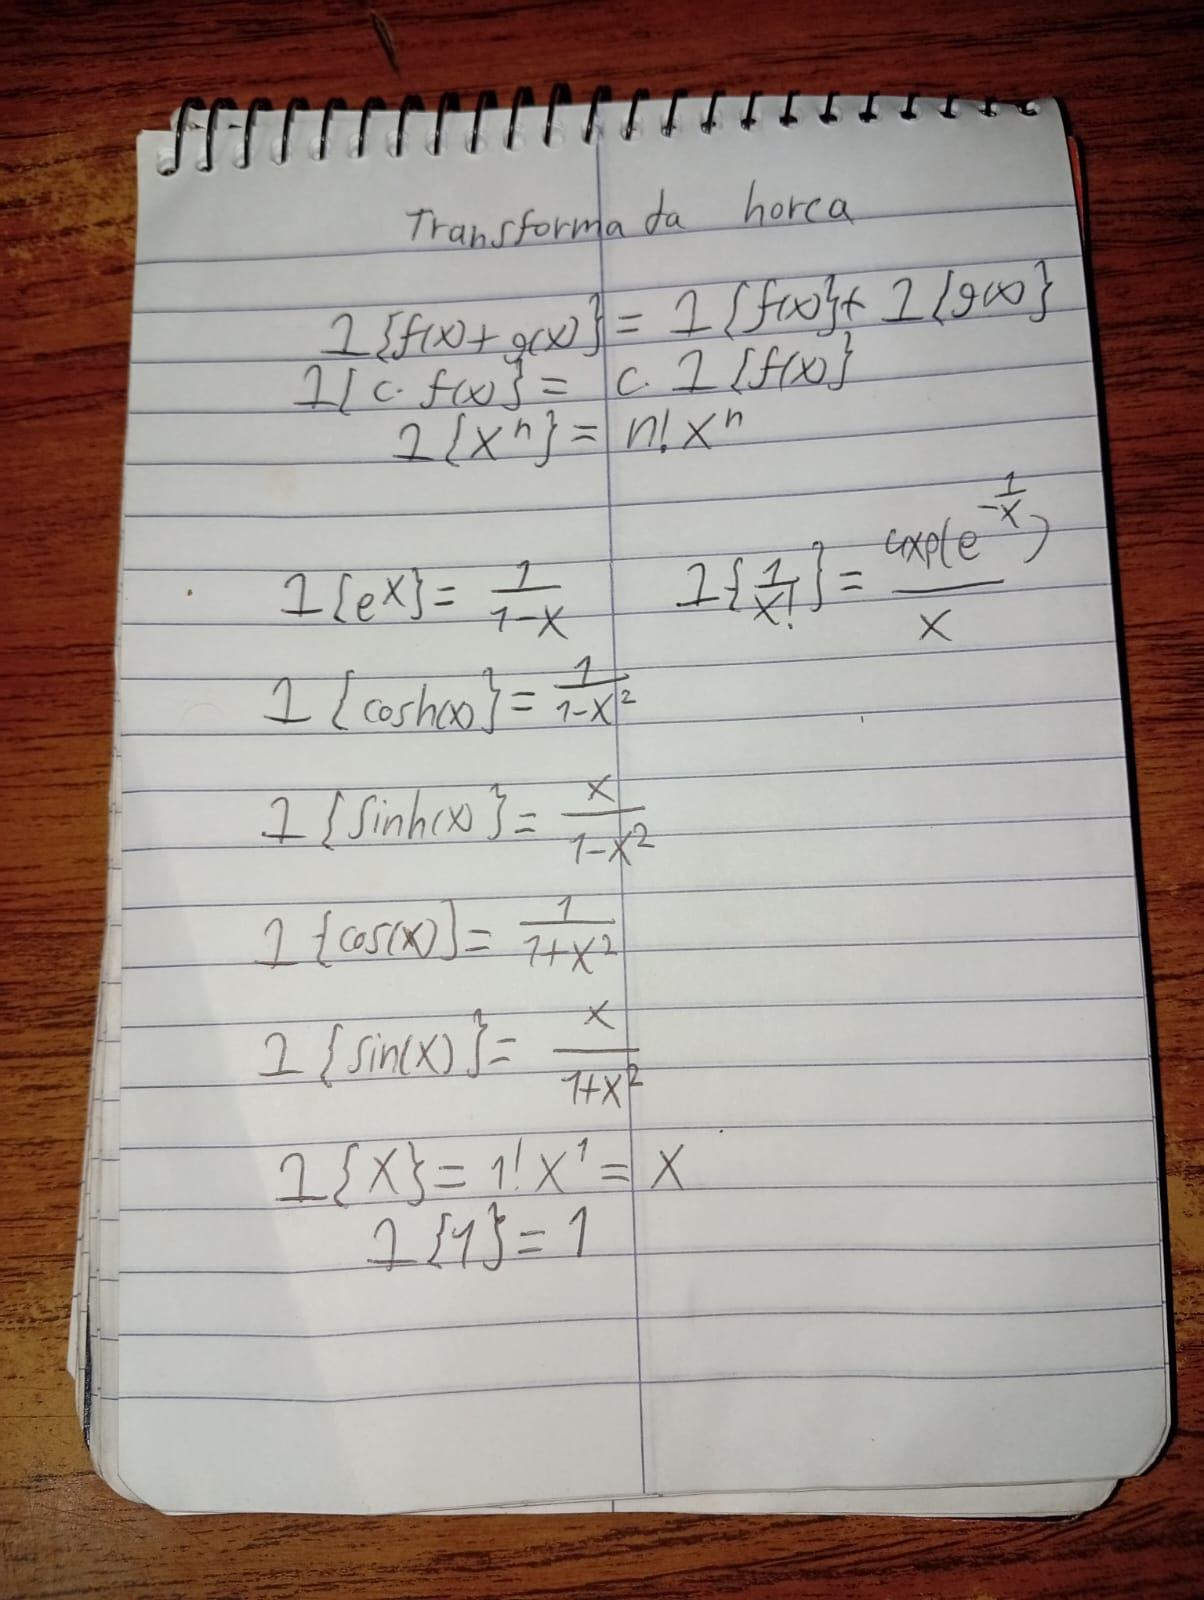 Transformada horca
1{f(x)+g(x)} = 1{f(x)}+ 1{g(x)}
1{c. f(x)} = c. 1{f(x)}
1{xⁿ} = n! xⁿ
1{eˣ} = 1/(1-x)    1{1/x!} = exp(e^(-1/x))/x
1{cosh(x)} = 1/(1-x²)
1{sinh(x)} = x/(1-x²)
1{cos(x)} = 1/(1+x²)
1{sin(x)} = x/(1+x²)
1{x} = 1! x¹ = x
1{1} = 1